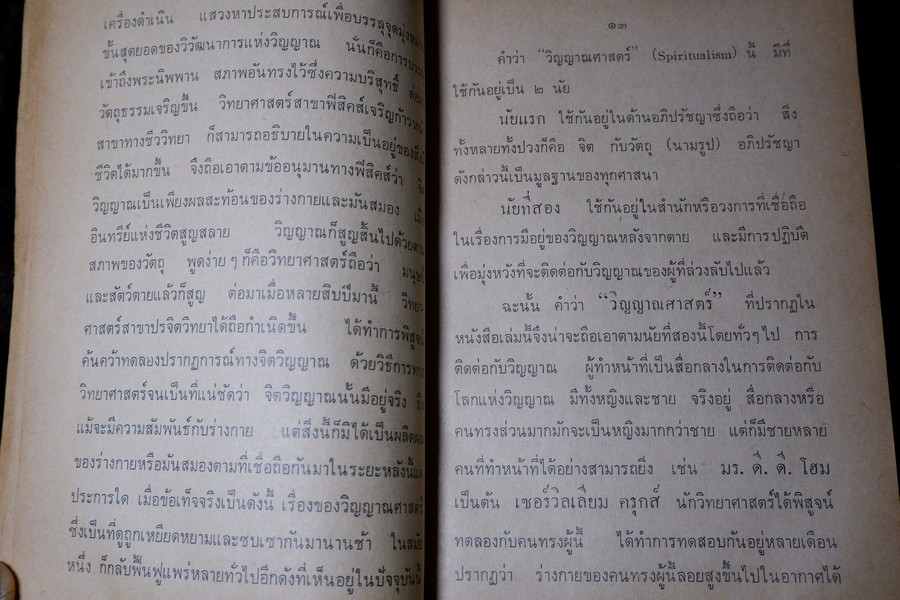 เครื่องดำเนิน แสวงหาประสบการณ์เพื่อบรรลุจุดมุ่งหมาย
ขั้นสุดยอดของวิวัฒนาการแห่งวิญญาณ นั่นก็คือการบรรลุ
เข้าถึงพระนิพพาน สภาพอันทรงไว้ซึ่งความบริสุทธิ์ ต่อมา
วัตถุธรรมเจริญขึ้น วิทยาศาสตร์สาขาฟิสิคส์เจริญก้าวหน้า
สาขาทางชีววิทยา ก็สามารถอธิบายในความเป็นอยู่ของสิ่งมี
ชีวิตได้มากขึ้น จึงถือเอาตามข้ออนุมานทางฟิสิคส์ว่า จิต
วิญญาณเป็นเพียงผลสะท้อนของร่างกายและมันสมอง เมื่อ
อินทรีย์แห่งชีวิตสูญสลาย วิญญาณก็สูญสิ้นไปด้วยตาม
สภาพของวัตถุ พูดง่าย ๆ ก็คือวิทยาศาสตร์ถือว่า มนุษย์
และสัตว์ตายแล้วก็สูญ ต่อมาเมื่อหลายสิบปีมานี้ วิทยา-
ศาสตร์สาขาปรจิตวิทยาได้ถือกำเนิดขึ้น ได้ทำการพิสูจน์
ค้นคว้าทดลองปรากฏการณ์ทางจิตวิญญาณ ด้วยวิธีการทาง
วิทยาศาสตร์จนเป็นที่แน่ชัดว่า จิตวิญญาณนั้นมีอยู่จริง ถึง
แม้จะมีความสัมพันธ์กับร่างกาย แต่สิ่งนี้ก็มิได้เป็นผลิตผล
ของร่างกายหรือมันสมองตามที่เชื่อถือกันมาในระยะหลังนี้แต่
ประการใด เมื่อข้อเท็จจริงเป็นดังนี้ เรื่องของวิญญาณศาสตร์
ซึ่งเป็นที่ดูถูกเหยียดหยามและซบเซากันมานานช้า ในสมัย
หนึ่ง ก็กลับฟื้นฟูแพร่หลายทั่วไปอีกดังที่เห็นอยู่ในปัจจุบันนี้
๑๓
คำว่า “วิญญาณศาสตร์” (Spiritualism) นี้ มีที่
ใช้กันอยู่เป็น ๒ นัย
นัยแรก ใช้กันอยู่ในด้านอภิปรัชญาซึ่งถือว่า สิ่ง
ทั้งหลายทั้งปวงก็คือ จิต กับวัตถุ (นามรูป) อภิปรัชญา
ดังกล่าวนี้เป็นมูลฐานของทุกศาสนา
นัยที่สอง ใช้กันอยู่ในสำนักหรือวงการที่เชื่อถือ
ในเรื่องการมีอยู่ของวิญญาณหลังจากตาย และมีการปฏิบัติ
เพื่อมุ่งหวังที่จะติดต่อกับวิญญาณของผู้ที่ล่วงลับไปแล้ว
ฉะนั้น คำว่า “วิญญาณศาสตร์” ที่ปรากฏใน
หนังสือเล่มนี้จึงน่าจะถือเอาตามนัยที่สองนี้โดยทั่วๆ ไป การ
ติดต่อกับวิญญาณ ผู้ทำหน้าที่เป็นสื่อกลางในการติดต่อกับ
โลกแห่งวิญญาณ มีทั้งหญิงและชาย จริงอยู่ สื่อกลางหรือ
คนทรงส่วนมากมักจะเป็นหญิงมากกว่าชาย แต่ก็มีชายหลาย
คนที่ทำหน้าที่ได้อย่างสามารถยิ่ง เช่น มร. ดี. ดี. โฮม
เป็นต้น เซอร์วิลเลี่ยม ครุกส์ นักวิทยาศาสตร์ได้พิสูจน์
ทดลองกับคนทรงผู้นี้ ได้ทำการทดสอบกันอยู่หลายเดือน
ปรากฏว่า ร่างกายของคนทรงผู้นี้ลอยสูงขึ้นไปในอากาศได้